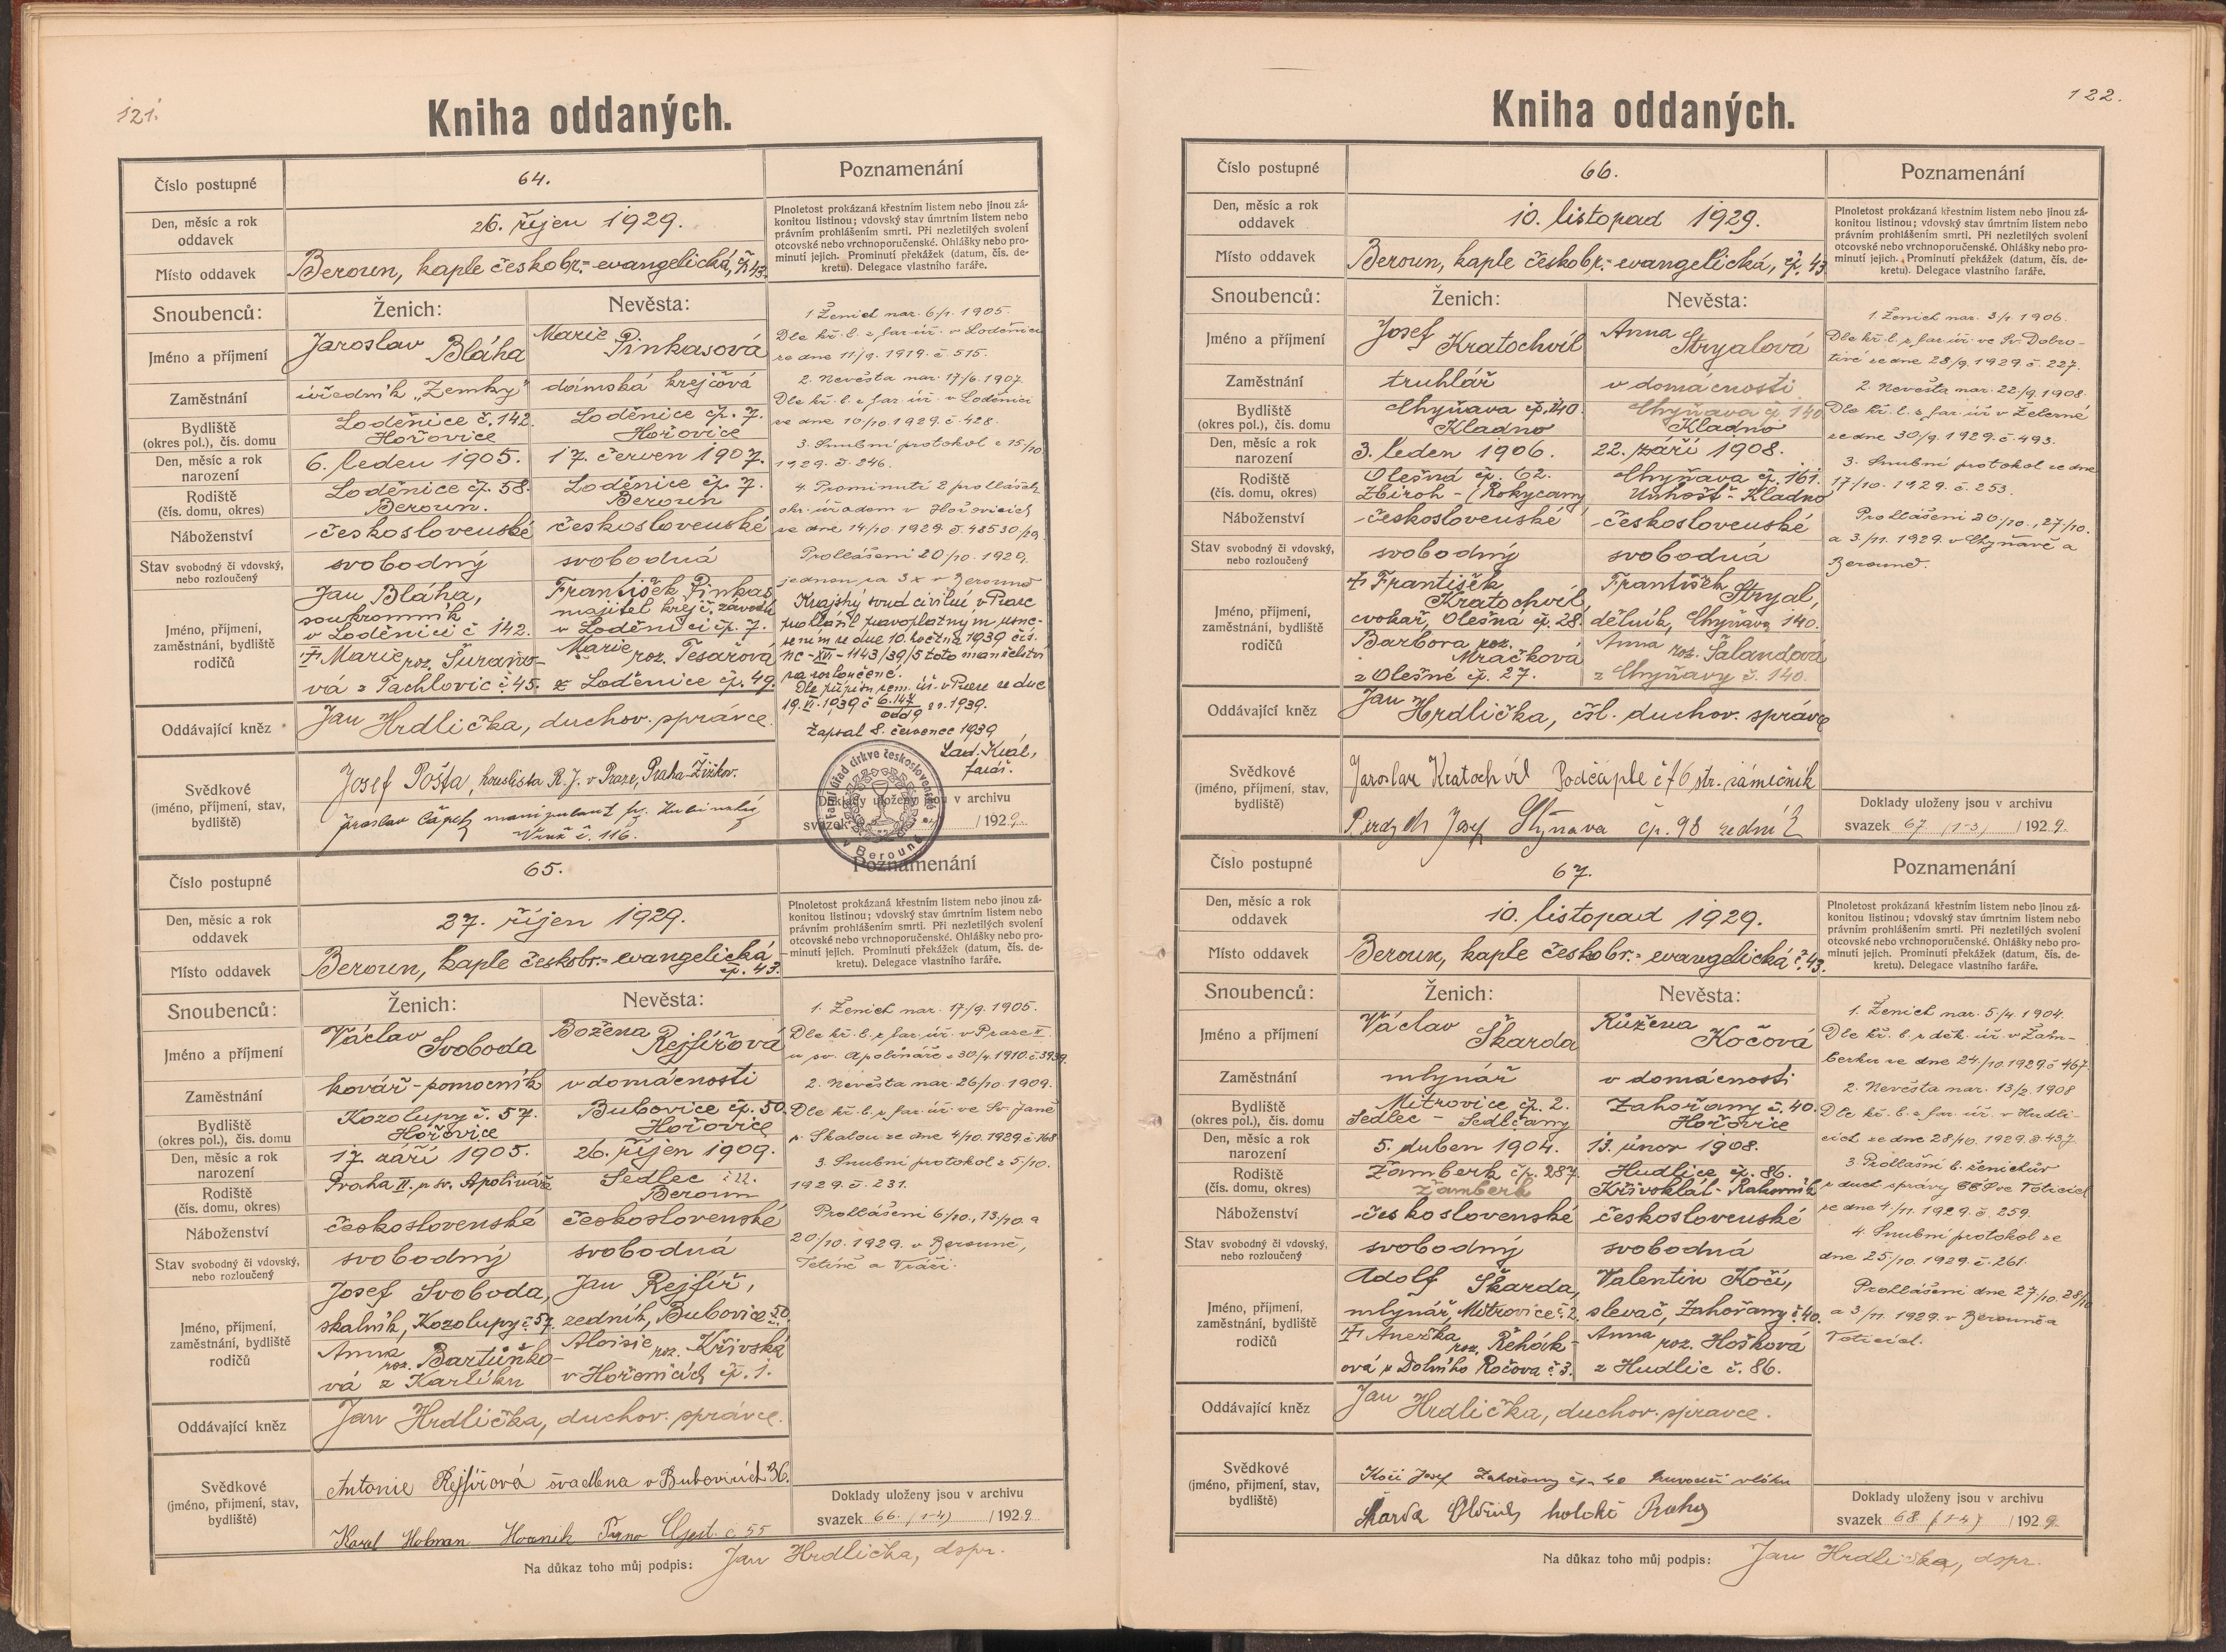 121.
Kniha oddaných.
Číslo postupné
64.
Poznamenání
Den, měsíc a rok
oddavek
26. říjen 1929.
Místo oddavek
Beroun, kaple českobr.-evangelická, č. 43.
Plnoletost prokázaná křestním listem nebo jinou zá-
konitou listinou; vdovský stav úmrtním listem nebo
právním prohlášením smrti. Při nezletilých svolení
otcovské nebo vrchnoporučenské. Ohlášky nebo pro-
minutí jejich. Prominutí překážek (datum, čís. de-
kretu). Delegace vlastního faráře.
Snoubenců:
Ženich:
Nevěsta:
Jméno a příjmení
Jaroslav Bláha
Marie Pinkasová
Zaměstnání
úředník „Zemky"
dámská krejčová
Bydliště
(okres pol.), čís. domu
Loděnice č. 142.
Hořovice
Loděnice čp. 7.
Hořovice
Den, měsíc a rok
narození
6. leden 1905.
17. červen 1907.
Rodiště
(čís. domu, okres)
Loděnice čp. 58.
Beroun.
Loděnice čp. 7.
Beroun
Náboženství
československé
československé
Stav svobodný či vdovský,
nebo rozloučený
svobodný
svobodná
Jméno, příjmení,
zaměstnání, bydliště
rodičů
Jan Bláha,
soukromník
v Loděnici č 142.
† Marie roz. Šurano-
vá z Tachlovic č. 45.
František Pinkas
majitel krejč. závodu
v Loděnici čp. 7.
Marie roz. Tesařová
z Loděnice čp. 49.
1. Ženich nar. 6/1. 1905.
Dle kř. l. z far. úř. v Loděnici
ze dne 11/9. 1919. č. 515.
2. Nevěsta nar. 17/6. 1907.
Dle kř. l. z far. úř. v Loděnici
ze dne 10/10. 1929. č 428.
3. Snubní protokol z 15./10
1929. č. 246.
4. Prominutí 2 prohlášek
okr. úřadem v Hořovicích
ze dne 14/10. 1929. č. 48530/29
Prohlášeni 20/10. 1929.
jednou za 3x v Berouně
Krajský soud civilní v Praze
prohlásil pravoplatným usne-
sením ze dne 10. května 1939 čís.
Nc-XVII-1143/39/5 toto manželství
za rozloučené.
Dle přípisu zem. úř. v Praze ze dne
19. VI. 1939 č 6.147 1939.
Zapsal 8. červenec 1939
Lad. Král,
farář.
Farní úřad církve československé
v Berouně
Oddávající kněz
Jan Hrdlička, duchov. správce.
Svědkové
(jméno, příjmení, stav,
bydliště)
Josef Pošta, houslista R. J. v Praze, Praha-Žižkov.
Jaroslav Čapek manipulant
č. 116.
Doklady uloženy jsou v archivu
svazek /1929.
Číslo postupné
65.
Poznamenání
Den, měsíc a rok
oddavek
27. říjen 1929.
Místo oddavek
Beroun, kaple českobr.-evangelická
čp. 43.
Plnoletost prokázaná křestním listem nebo jinou zá-
konitou listinou; vdovský stav úmrtním listem nebo
právním prohlášením smrti. Při nezletilých svolení
otcovské nebo vrchnoporučenské. Ohlášky nebo pro-
minutí jejich. Prominutí překážek (datum, čís. de-
kretu). Delegace vlastního faráře.
Snoubenců:
Ženich:
Nevěsta:
Jméno a příjmení
Václav Svoboda
Božena Rejfířová
Zaměstnání
kovář-pomocník
v domácnosti
Bydliště
(okres pol.), čís. domu
Kozolupy č. 57.
Hořovice
Bubovice čp. 50.
Hořovice
Den, měsíc a rok
narození
17. září 1905.
26. říjen 1909.
Rodiště
(čís. domu, okres)
Praha II. u sv. Apolináře
Sedlec č 22.
Beroun
Náboženství
československé
československé
Stav svobodný či vdovský,
nebo rozloučený
svobodný
svobodná
Jméno, příjmení,
zaměstnání, bydliště
rodičů
Josef Svoboda,
skalník, Kozolupy č. 57.
Anna roz. Bartůňko-
vá z Karlíku
Jan Rejfíř,
zedník, Bubovice č. 50.
Aloisie roz. Křivská
v Hořonicích čp. 1.
1. Ženich nar. 17/9. 1905.
Dle kř. l. z far. úř. v Praze II
u sv. Apolináře z 30/4. 1910. č 3939.
2. Nevěsta nar. 26/10. 1909.
Dle kř. l. z far. úř. ve Sv. Janě
p. Skalou ze dne 4/10. 1929. č 168
3. Snubní protokol z 5/10.
1929. č. 231.
Prohlášeni 6/10., 13/10. a
20/10. 1929. v Berouně,
Tetíně a Vráži.
Oddávající kněz
Jan Hrdlička, duchov. správce.
Svědkové
(jméno, příjmení, stav,
bydliště)
Antonie Rejfířová švadlena v Bubovicích 36.
Karel Holman Horník č 55
Doklady uloženy jsou v archivu
svazek 66. (1-4) /1929.
Na důkaz toho můj podpis: Jan Hrdlička, dspr.
122.
Kniha oddaných.
Číslo postupné
66.
Poznamenání
Den, měsíc a rok
oddavek
10. listopad 1929.
Místo oddavek
Beroun, kaple českobr.-evangelická, čp. 43
Plnoletost prokázaná křestním listem nebo jinou zá-
konitou listinou; vdovský stav úmrtním listem nebo
právním prohlášením smrti. Při nezletilých svolení
otcovské nebo vrchnoporučenské. Ohlášky nebo pro-
minutí jejich. Prominutí překážek (datum, čís. de-
kretu). Delegace vlastního faráře.
Snoubenců:
Ženich:
Nevěsta:
Jméno a příjmení
Josef Kratochvíl
Anna Stryalová
Zaměstnání
truhlář
v domácnosti
Bydliště
(okres pol.), čís. domu
Chyňava čp. 140.
Kladno
Chyňava č. 140
Kladno
Den, měsíc a rok
narození
3. leden 1906.
22. září 1908.
Rodiště
(čís. domu, okres)
Olešná čp. 62.
Zbiroh - (Rokycany
Chyňava č. 161.
Unhošť - Kladno
Náboženství
československé
československé
Stav svobodný či vdovský,
nebo rozloučený
svobodný
svobodná
Jméno, příjmení,
zaměstnání, bydliště
rodičů
† František
Kratochvíl
cvokař, Olešná čp. 28.
Barbora roz.
Mráčková
z Olešné čp. 27.
František Stryal,
dělník, Chyňava 140.
Anna roz. Šalandová
z Chyňavy č. 140.
1. Ženich nar. 3/1. 1906.
Dle kř. l. z far. úř. ve Sv. Dobro-
tivé ze dne 28/9. 1929. č. 227.
2. Nevěsta nar. 22/9. 1908.
Dle kř. l. z far. úř v Železné
ze dne 30/9. 1929. č. 493.
3. Snubní protokol ze dne
17/10. 1929. č. 253.
Prohlášeni 20/10., 27/10.
a 3/11. 1929. v Chyňavě a
Berouně.
Oddávající kněz
Jan Hrdlička, čsl. duchov. správce
Svědkové
(jméno, příjmení, stav,
bydliště)
Jaroslav Kratochvíl Podčáple č 76 str. zámečník
Josef Chyňava čp. 98 zedník
Doklady uloženy jsou v archivu
svazek 67 (1-3) /1929.
Číslo postupné
67.
Poznamenání
Den, měsíc a rok
oddavek
10. listopad 1929.
Místo oddavek
Beroun, kaple českobr.-evangelická č. 43.
Plnoletost prokázaná křestním listem nebo jinou zá-
konitou listinou; vdovský stav úmrtním listem nebo
právním prohlášením smrti. Při nezletilých svolení
otcovské nebo vrchnoporučenské. Ohlášky nebo pro-
minutí jejich. Prominutí překážek (datum, čís. de-
kretu). Delegace vlastního faráře.
Snoubenců:
Ženich:
Nevěsta:
Jméno a příjmení
Václav Škarda
Růžena Kočová
Zaměstnání
mlynář
v domácnosti
Bydliště
(okres pol.), čís. domu
Mitrovice čp. 2.
Sedlec - Sedlčany
Zahořany č. 40.
Hořovice
Den, měsíc a rok
narození
5. duben 1904.
13. únor 1908.
Rodiště
(čís. domu, okres)
Žamberk čp. 287.
Žamberk
Hudlice čp. 86.
Křivoklát - Rakovník
Náboženství
československé
československé
Stav svobodný či vdovský,
nebo rozloučený
svobodný
svobodná
Jméno, příjmení,
zaměstnání, bydliště
rodičů
Adolf Škarda,
mlynář, Mitrovice č. 2.
† Anežka roz. Řehák-
ová z Dolního Ročova č 3.
Valentin Kočí,
slevač, Zahořany č. 40.
Anna roz. Hošková
z Hudlic č. 86.
1. Ženich nar. 5/4. 1904.
Dle kř. l. z děk. úř. v Žam-
berku ze dne 24/10. 1929. č 467.
2. Nevěsta nar. 13/2. 1908
Dle kř. l. z far. úř. v Hudli-
cích ze dne 28/10. 1929. č. 437.
3. Prohlášní l. ženichův
z duch. správy CČS ve Voticích
ze dne 4/11. 1929. č. 259.
4. Snubní protokol ze
dne 25/10. 1929. č. 261.
Prohlášeni dne 27/10. 28/10
a 3/11. 1929. v Berouně a
Voticích.
Oddávající kněz
Jan Hrdlička, duchov. správce.
Svědkové
(jméno, příjmení, stav,
bydliště)
Kočí Josef Zahořany čp. 40 průvodčí vlaku
Škarda Oldřich holič Praha
Doklady uloženy jsou v archivu
svazek 68 (1-4) /1929.
Na důkaz toho můj podpis: Jan Hrdlička, dspr.